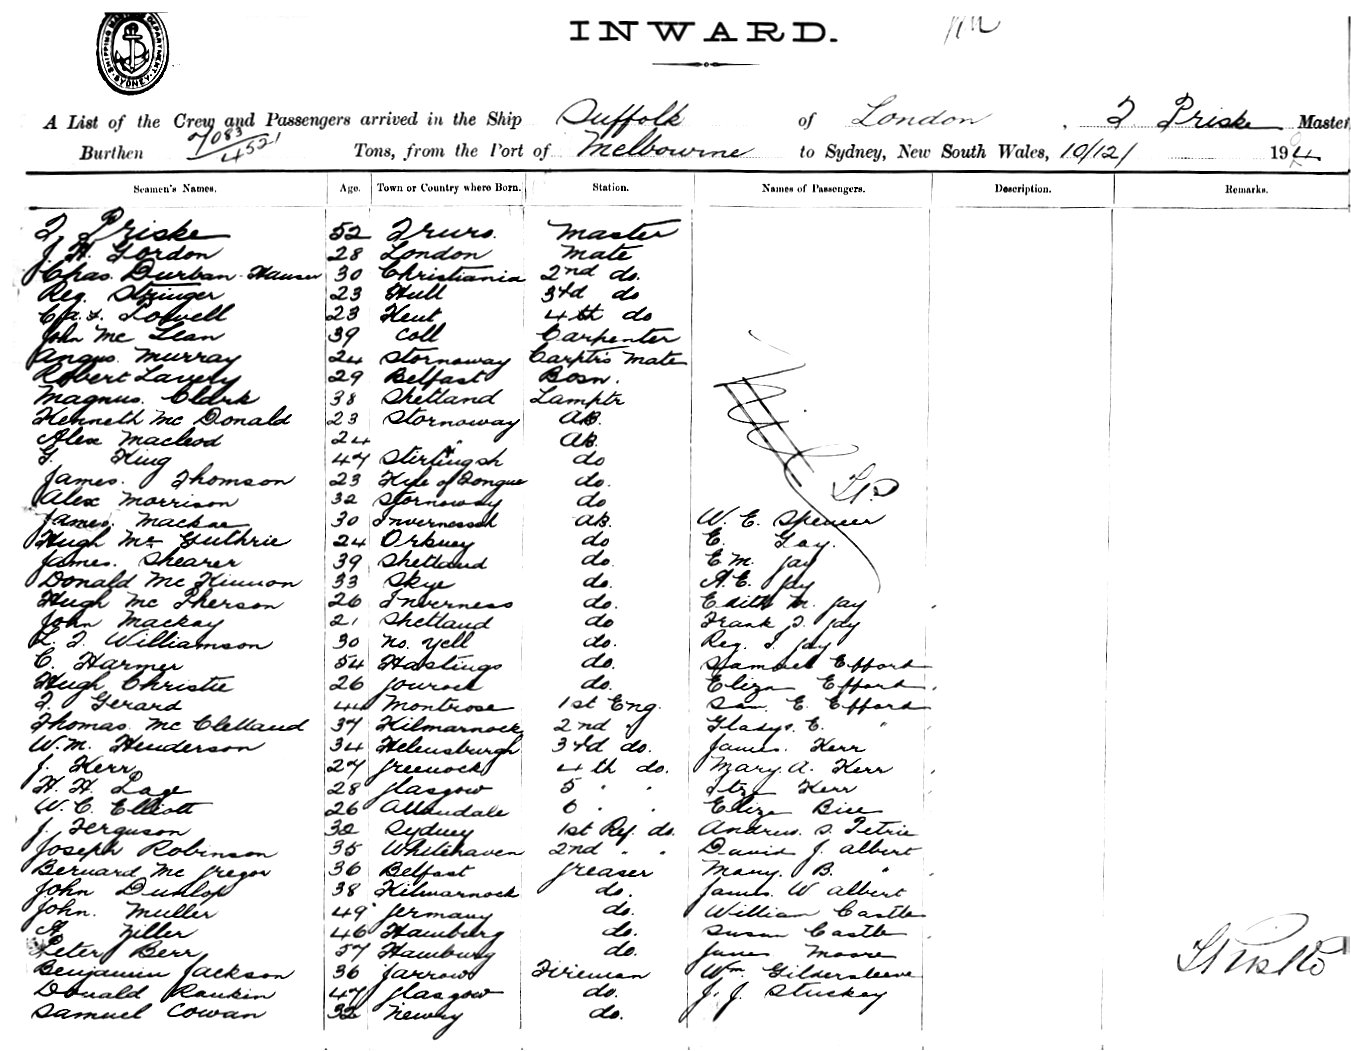 SHIPPING MASTER'S DEPARTMENT SYDNEY
INWARD.
A List of the Crew and Passengers arrived in the Ship Suffolk of London, T Priske Master
Burthen 7083/4521 Tons, from the Port of Melbourne to Sydney, New South Wales, 10/12/ 19
Seamen's Names. Age. Town or Country where Born. Station. Names of Passengers. Description. Remarks.
T Priske 52 Truro Master
J. H. Gordon 28 London Mate
Chas. Durban-Hansen 30 Christiania 2nd do.
Reg. Stringer 23 Hull 3rd do
Powell 23 Kent 4th do
John Mc Lean 39 Coll Carpenter
Angus. Murray 24 Stornoway Carptrs Mate
Robert Lavery 29 Belfast Bosn.
Magnus. Clark 38 Shetland Lamptr
Kenneth Mc Donald 23 Stornoway AB.
Alex Macleod 24 " AB.
G. King 47 Sterlingsh do
James. Thomson 23 Kyle of Tongue do.
Alex Morrison 32 Stornoway do
James. Mackae 30 Invernessh AB. W. E. Spencer
Hugh Mc Guthrie 24 Orkney do E. Gay.
James. Shearer 39 Shetland do E. M. Jay
Donald Mc Kinnon 33 Skye do. A. E. Jay
Hugh Mc Pherson 26 Inverness do. Edith M. Jay
John Mackay 21 Shetland do Frank J. Jay
L. T. Williamson 30 No. Yell do. Reg. J. Jay
C. Harmer 54 Hastings do. Samuel Efford
Hugh Christie 26 Gourock do. Eliza Efford
T. Gerard 44 Montrose 1st Eng. Sam. E. Efford
Thomas. Mc Clelland 37 Kilmarnock 2nd " Gladys. E. "
W. M. Henderson 34 Helensburgh 3rd do. James. Kerr
J. Kerr 27 Greenock 4th do. Mary. A. Kerr
H. H. Page 28 Glasgow 5 " " Kerr
W. C. Elliott 26 Allandale 6 " " Eliza Bice
J. Ferguson 32 Sydney 1st Ref. do. Andrew. S. Petrie
Joseph Robinson 35 Whitehaven 2nd " " David J. Albert
Bernard Mc Gregor 36 Belfast Greaser Mary. B. "
John Dunlop 38 Kilmarnock do. James. W Albert
John. Muller 49 Germany do. William Castle
A. Ziller 46 Hamburg do. Susan Castle
Peter Berr 57 Hamburg do. James Moore
Benjamin Jackson 36 Jarrow Fireman Wm. Gildersleeve
Donald Rankin 47 Glasgow do. J. J. Stuckey
Samuel Cowan 32 Newry do.